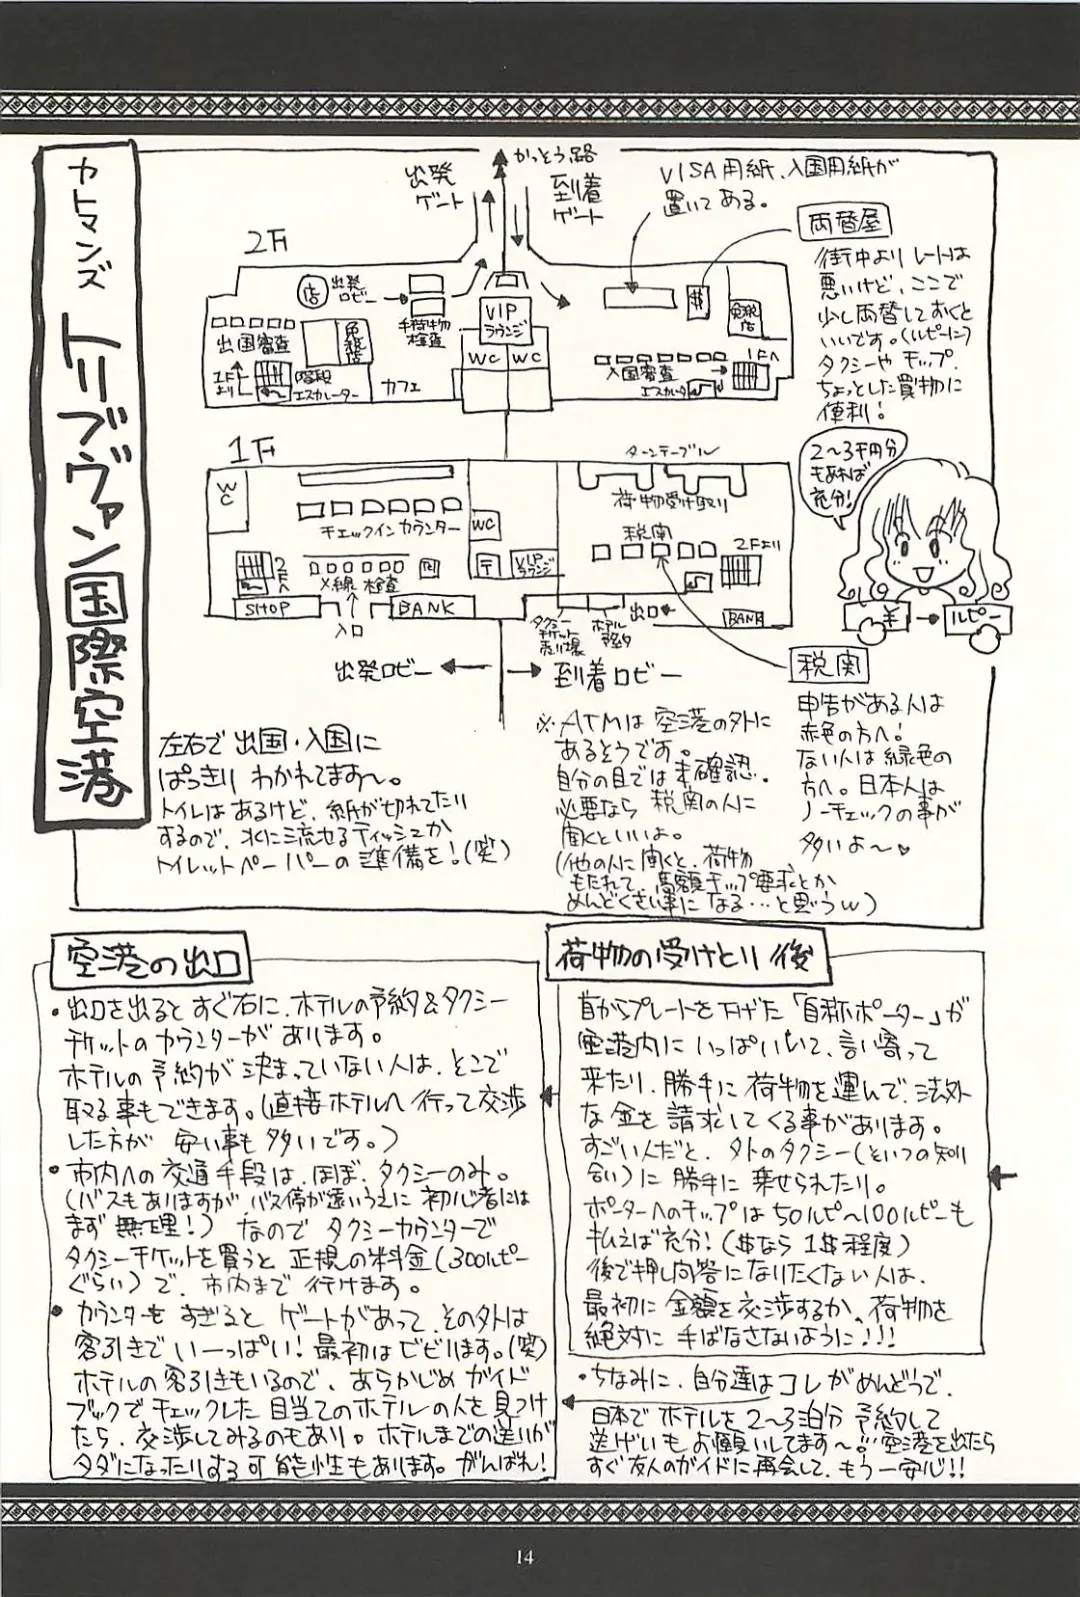 カトマンズ トリブヴァン国際空港
かっとう路
出発
ゲート
到着
ゲート
VISA用紙、入国用紙が
置いてある。
両替屋
街中よりレートは
悪いけど、ここで
少し両替しておくと
いいです。(ルピーに)
タクシーやチップ、
ちょっとした買物に
便利!
2〜3千円分
もあれば
充分!
¥
ルピー
2F
店
出発
ロビー
手荷物
検査
VIP
ラウンジ
$
免税
店
出国審査
免税
店
WC
WC
入国審査
1Fへ
1F
より
階段
エスカレーター
カフェ
エスカレータ
1F
WC
ターンテーブル
荷物受け取り
チェックインカウンター
WC
税関
2Fより
2Fへ
X線検査
〒
VIP
ラウンジ
SHOP
BANK
入口
タクシー
チケット
売り場
ホテル
予約
出口
BANK
出発ロビー
到着ロビー
税関
申告がある人は
赤色の方へ!
ない人は緑色の
方へ。日本人は
ノーチェックの事が
多いよ〜♥
左右で出国・入国に
ぱっきりわかれてます〜。
トイレはあるけど、紙が切れてたり
するので、水に流せるティッシュか
トイレットペーパーの準備を!(笑)
※ATMは空港の外に
あるそうです。
自分の目では未確認。
必要なら税関の人に
聞くといいよ。
(他の人に聞くと、荷物
もたれて、高額チップ要求とか
めんどくさい事になる…と思うw)
空港の出口
・出口を出るとすぐ右に、ホテルの予約&タクシー
チケットのカウンターがあります。
ホテルの予約が決まっていない人は、とこで
取る事もできます。(直接ホテルへ行って交渉
した方が安い事も多いです。)
・市内への交通手段は、ほぼ、タクシーのみ。
(バスもありますがバス停が遠いうえに初心者には
まず無理!)なのでタクシーカウンターで
タクシーチケットを買うと正規の料金(300ルピー
ぐらい)で、市内まで行けます。
・カウンターをすぎるとゲートがあって、その外は
客引きでいーっぱい!最初はビビります。(笑)
ホテルの客引きもいるので、あらかじめガイド
ブックでチェックした目当てのホテルの人を見つけ
たら、交渉してみるのもあり。ホテルまでの送りが
タダになったりする可能性もあります。がんばれ!
荷物の受けとり後
首からプレートを下げた「自称ポーター」が
空港内にいっぱいいて、言い寄って
来たり、勝手に荷物を運んで、法外
な金を請求してくる事があります。
すごい人だと、外のタクシー(といつの知り
合い)に勝手に乗せられたり。
ポーターへのチップは50ルピー〜100ルピーも
払えば充分!($なら1$程度)
後で押し問答になりたくない人は、
最初に金額を交渉するか、荷物を
絶対に手ばなさないように!!!
・ちなみに、自分達はコレがめんどうで、
日本でホテルを2〜3泊分予約して
送迎もお願いしてます〜。空港を出たら
すぐ友人のガイドに再会して、もう一安心!!
14